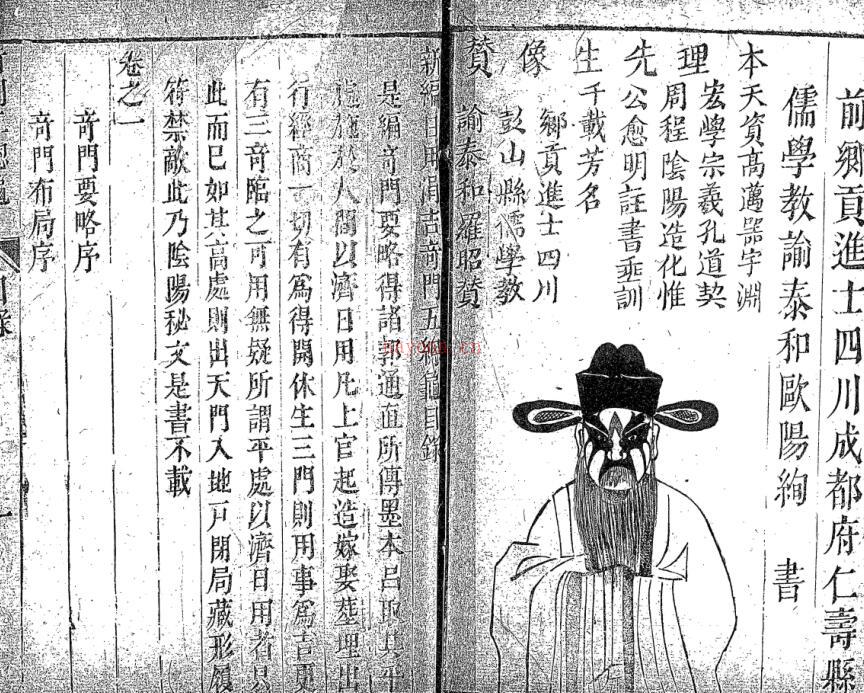 前鄉貢進士四川成都府仁壽縣
儒學教諭泰和歐陽絢 書
本天資高邁器宇淵
宏學宗羲孔道契
理周程陰陽造化惟
先公愈明註書垂訓
生千載芳名
像 鄉貢進士四川
彭山縣儒學教
贊 諭泰和羅昭贊
新編日用涓吉奇門五總龜目錄
是編奇門要略得諸郭通直所傳墨本吕取其平
施於人間以濟日用凡上官起造嫁娶塟埋出
行經商一切有為得開休生三門則用事為吉更
有三奇臨之可用無疑所謂平處以濟日用者只
此而已如其高處則出天門入地戶閉局藏形履
符禁敵此乃陰陽秘文是書不載
卷之一
奇門要略序
奇門布局序
目錄
一
nayona.cn